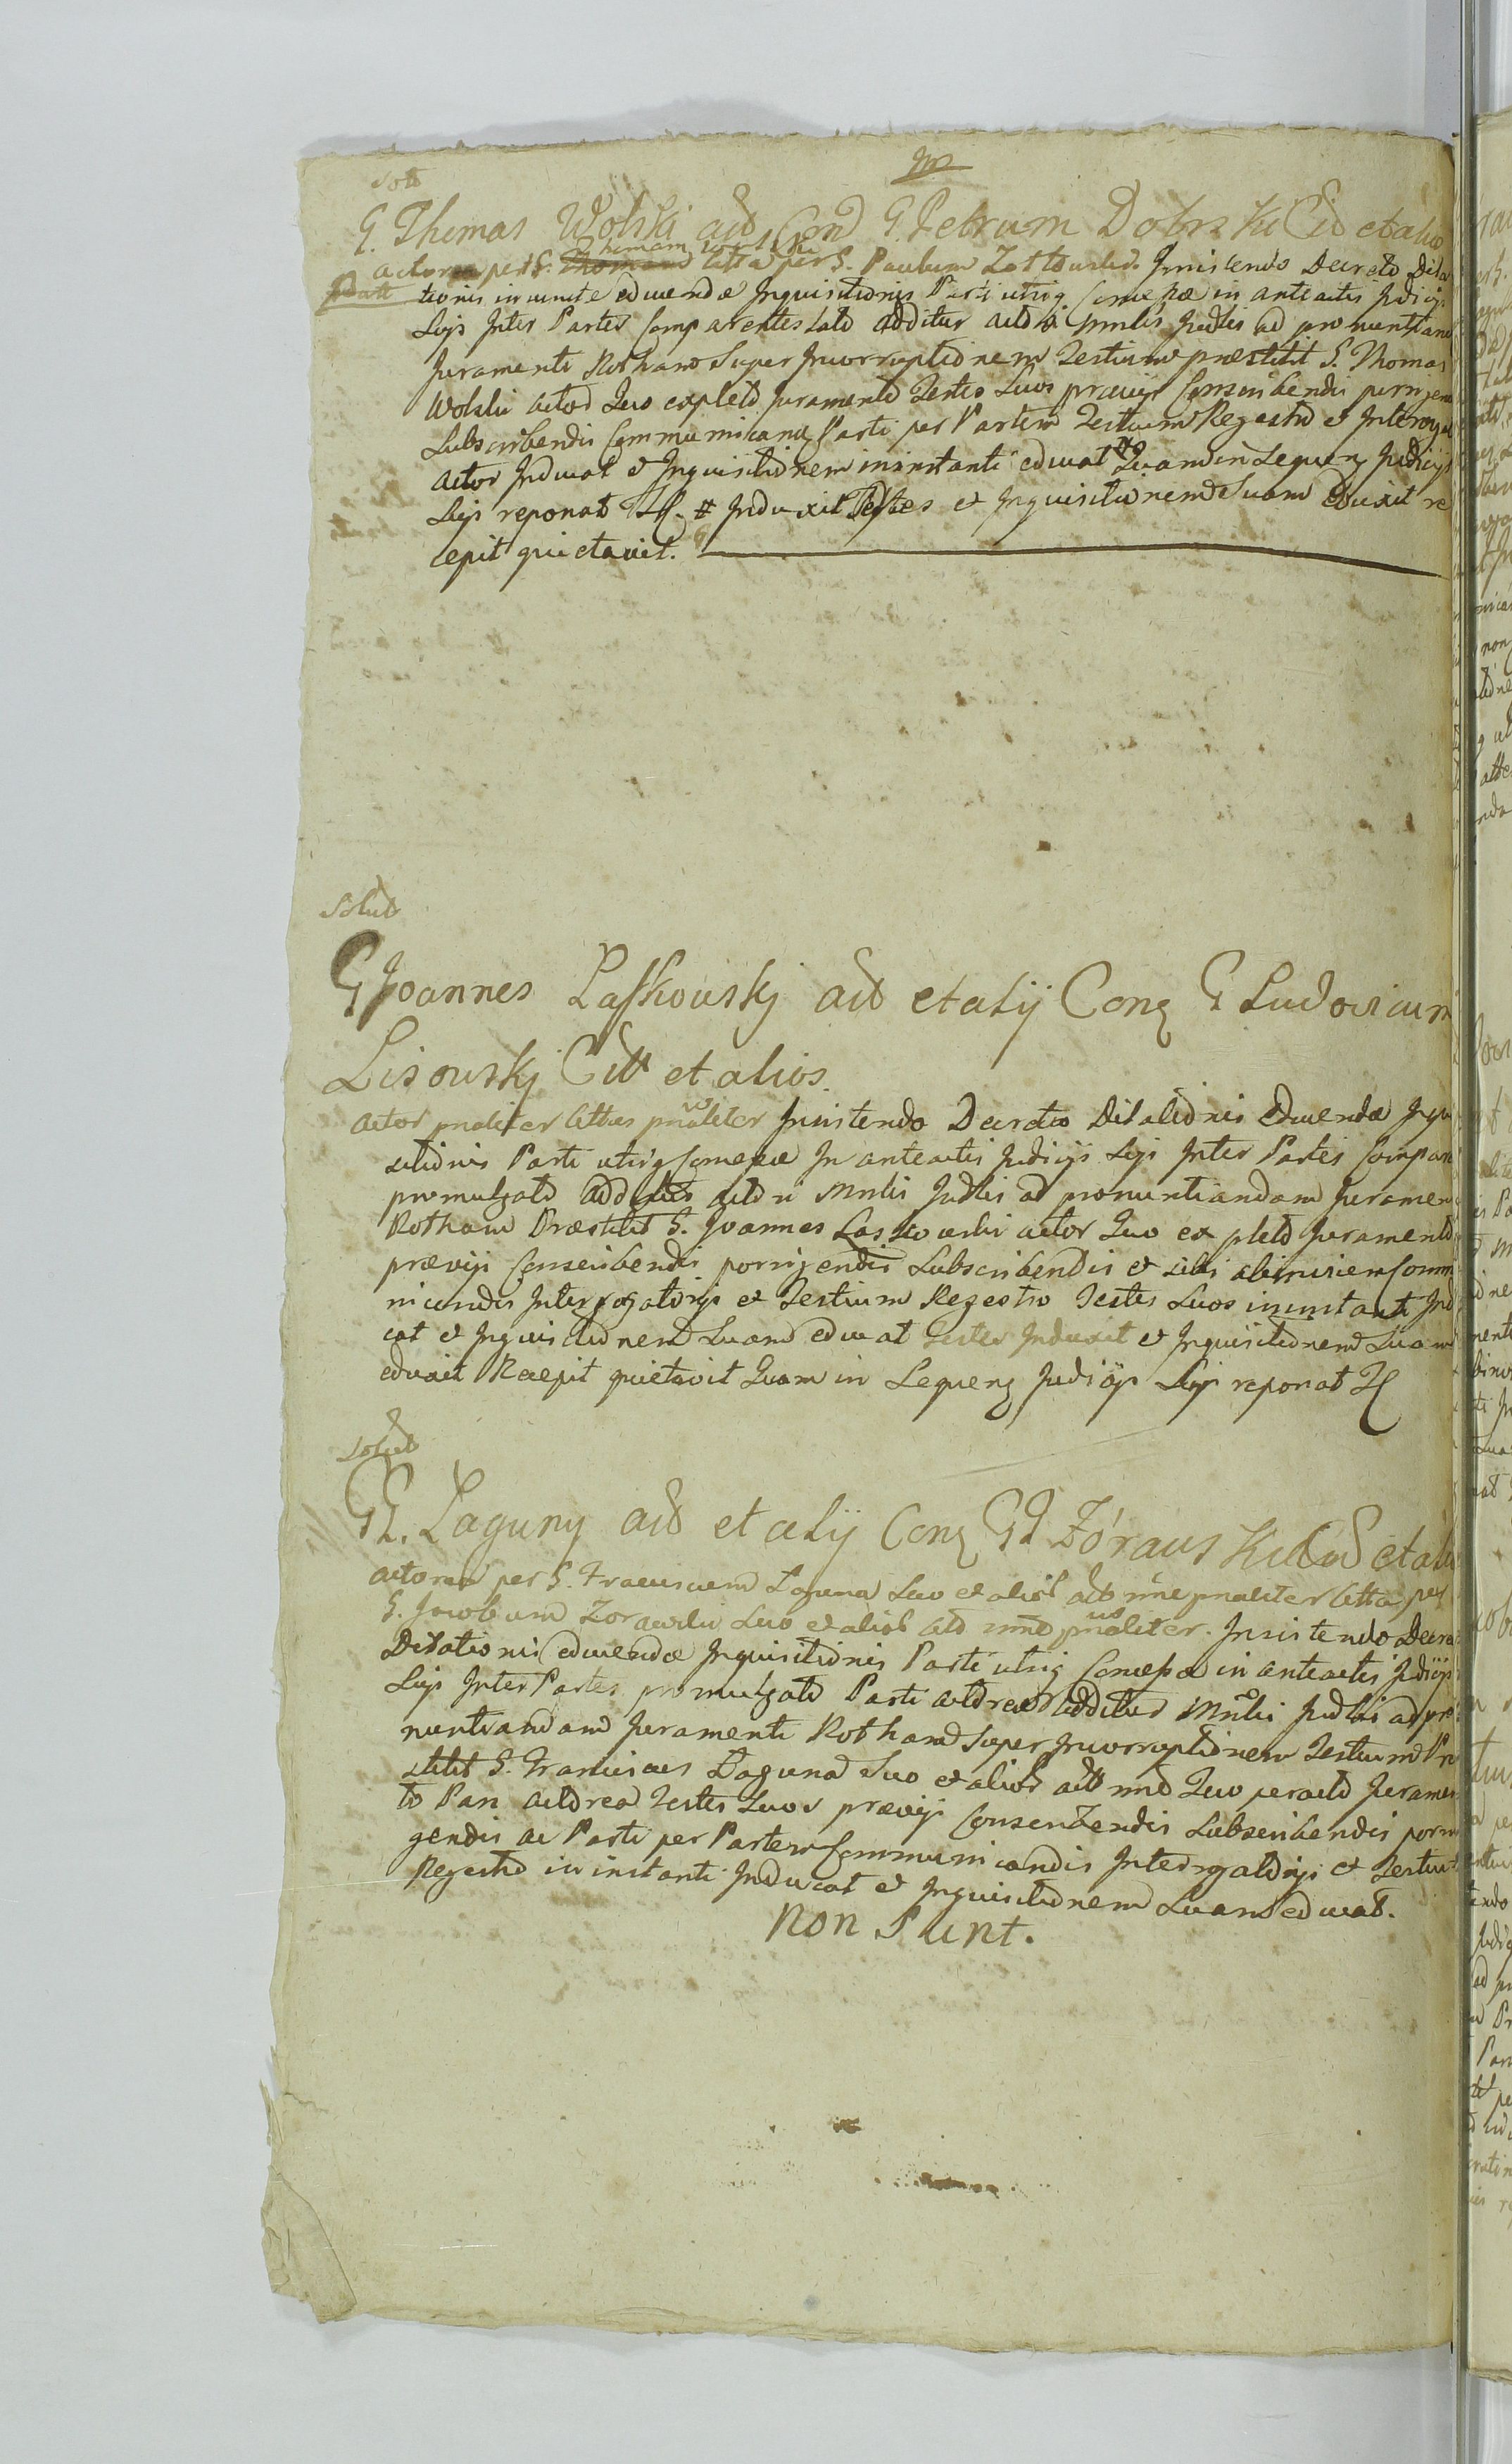 Solt
G. Thomas Wolski act Con G. Petrum Dobrski Cit et alios
Thomam Wolski
actorea per G. Thomam Citta per G. Paulum Insistendo Decreto Dila
tionis in educendæ Inquisitionis Parti utriq Concessæ in anteactis Judicijs
Sijs Inter Partes Comparentes lato additur actori Mnlis Judlis ad pronuntiand
Juramenti Rotham Super Incorruptionem Testium præstitit G. Thomas
Wolski actor Quo expleto Juramento Testes Suos prævijs Conscribendis porrigen
Subscribendis Communicanq Parti per Partem Testium Regestro et Interoga
actor Inducat et Inquisitionem in instanti educat # Quam in Sequenq Judicijs
Sijs reponat # Induxit Testes et Inquisitionem Suam eduxit re
cepit quietavit.
Solut
G Joannes Laskowskj act et alij Conq G Ludovicum
Lisowskj Citt et alios.
actor pnaliter Cittus pnaliter Insistendo Decreto Dilationis Educendæ Inqui
sitionis Parti utriq Concessæ In anteactis Judicijs Sijs Inter Partes Compar
promulgato additur actori Mnlis Judlis ad pronuntiandam Juramen
Rotham Præstitit G. Joannes Laskowski actor Quo expleto Juramento
prævijs Conscribendis porrigendis Subscribendis et sibi abinvicem Comm
nicandis Interrogatorijs et Testium Regestro Testes Suos in instanti Indu
cat et Inquisitionem Suam educat Testes Induxit et Inquisitionem Suam
eduxit Recepit quietavit Quam in Sequenq Judicijs Sijs reponat
Solut
GG. Laguny act et alij Conq GG Zórawski Citt et alios
actorea per G. Franciscum Laguna Suo et alior act nne pnaliter Citta per
G. Jacobum Zorawski Suo et alior nne pnaliter. Insistendo Decreto
Dilationis educendæ Inquisitionis Parti utriq Concessæ in anteactis Judicijs
Sijs Inter Partes promulgato Parti actorea additur Mnlis Judlis ad pro
nuntiandam Juramenti Rotham Super Incorruptionem Testium Præ
stitit G. Franciscus Laguna Suo et alior act nne Quo peracto Juramen
to Pars actorea Testes Suos prævijs Conscribendis Subscribendis porri
gendis ac Parti per Partem Communicandis Interrogatorijs et Testium
Regestro in instanti Inducat et Inquisitionem Suam educat.
Non Sunt.